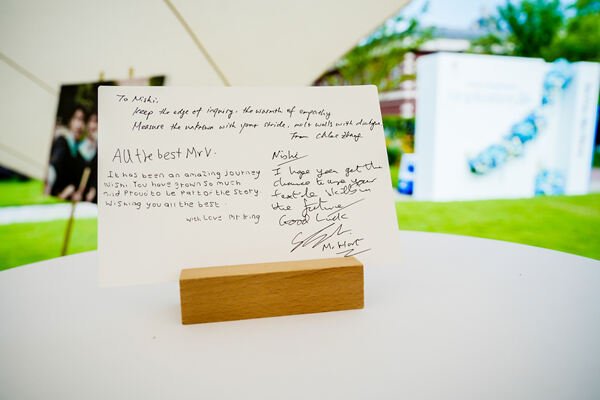 To Nishi.
Keep the edge of inquiry, the warmth of empathy
Measure the unknown with your stride, melt walls with dialogue
From Chloe Zhang
All the best Mr V.
It has been an amazing journey
Nishi. You have grown so much
and Proud to be Part of the Story.
Wishing you all the best.
with Love Mr King
Nishi
I hope you get the
chance to use your
in
the future
Good Luck
Mr Hart